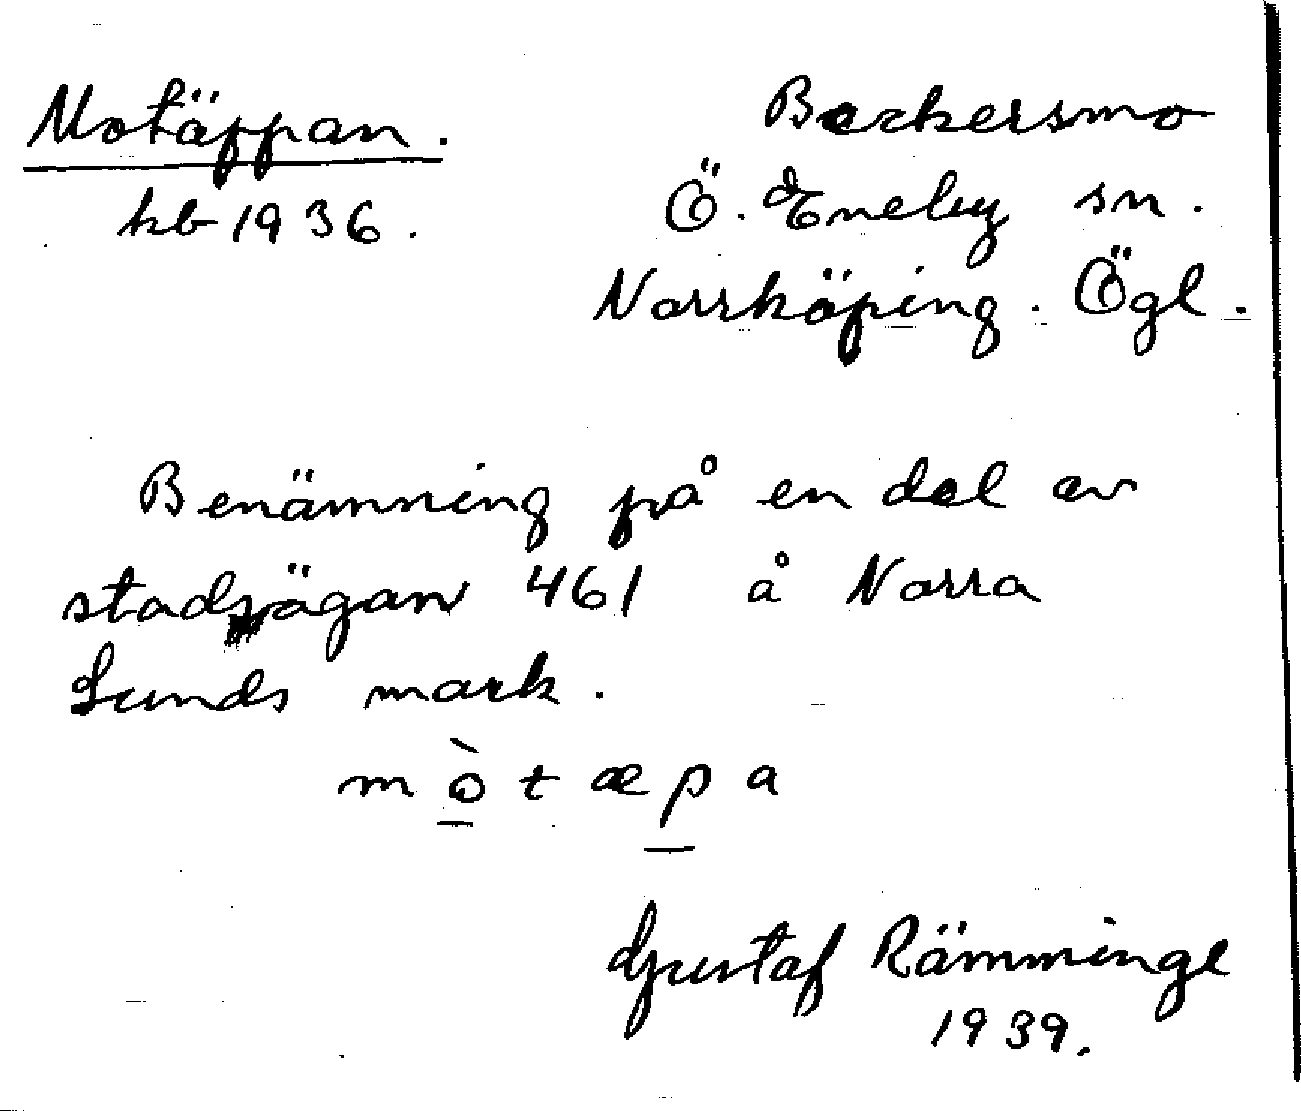 Motäppan. Beckersmo
kb 1936. Ö. Eneby sn.
Norrköping. Ögl.
Benämning på en del av
stadsägan 461 å Norra
Sunds mark.
m ò t æ p a
Gustaf Rämminge
1939.